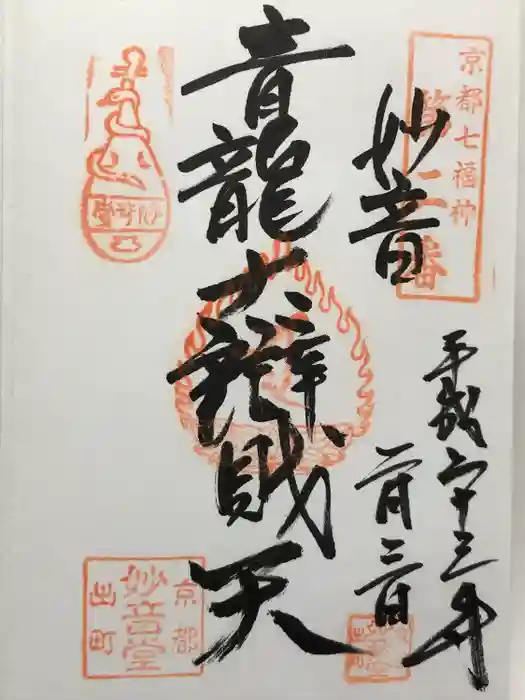 京都七福神
第二番
妙音
青龍大辯財天
平成二十三年
二月三日
京都
妙音堂
出町